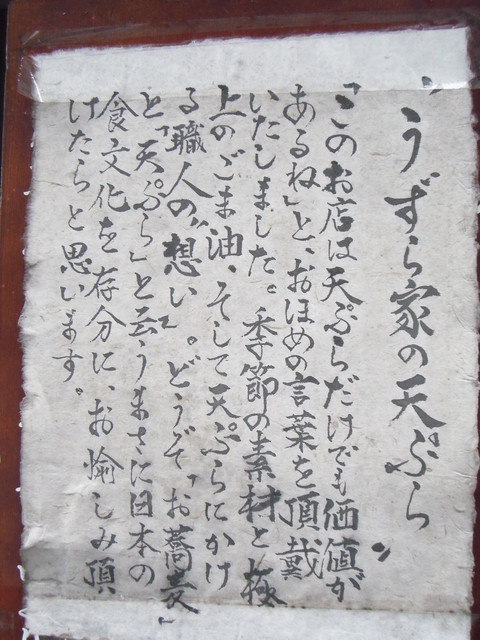 〝うずら家の天ぷら〟
「このお店は天ぷらだけでも価値が
あるね」と、おほめの言葉を頂戴
いたしました。季節の素材と極
上のごま油、そして天ぷらにかけ
る職人の〝想い〟。どうぞ「お蕎麦」
と「天ぷら」と云うまさに日本の
食文化を存分に、お愉しみ頂
けたらと思います。